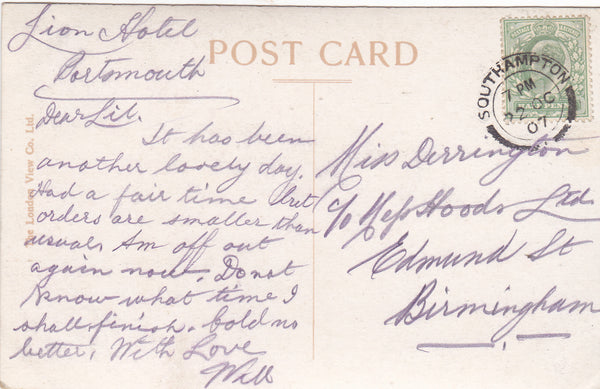 Lion Hotel
Portsmouth
POST CARD
Dear Lil.
It has been
another lovely day.
Had a fair time but
orders are smaller than
usual. Am off out
again now. Do not
know what time I
shall finish. Cold no
better. With Love
Will
The London View Co. Ltd.
SOUTHAMPTON
7 PM
07
Miss Derrington
c/o Mess Hoods Ltd
Edmund St
Birmingham